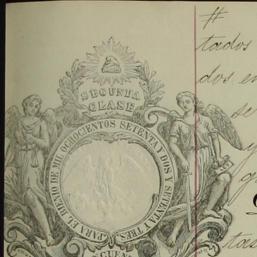 SEGUNDA
CLASE
PARA EL BIENIO DE MIL OCHOCIENTOS SETENTA Y DOS Y SETENTA Y TRES
#
tados
dos en
se
y